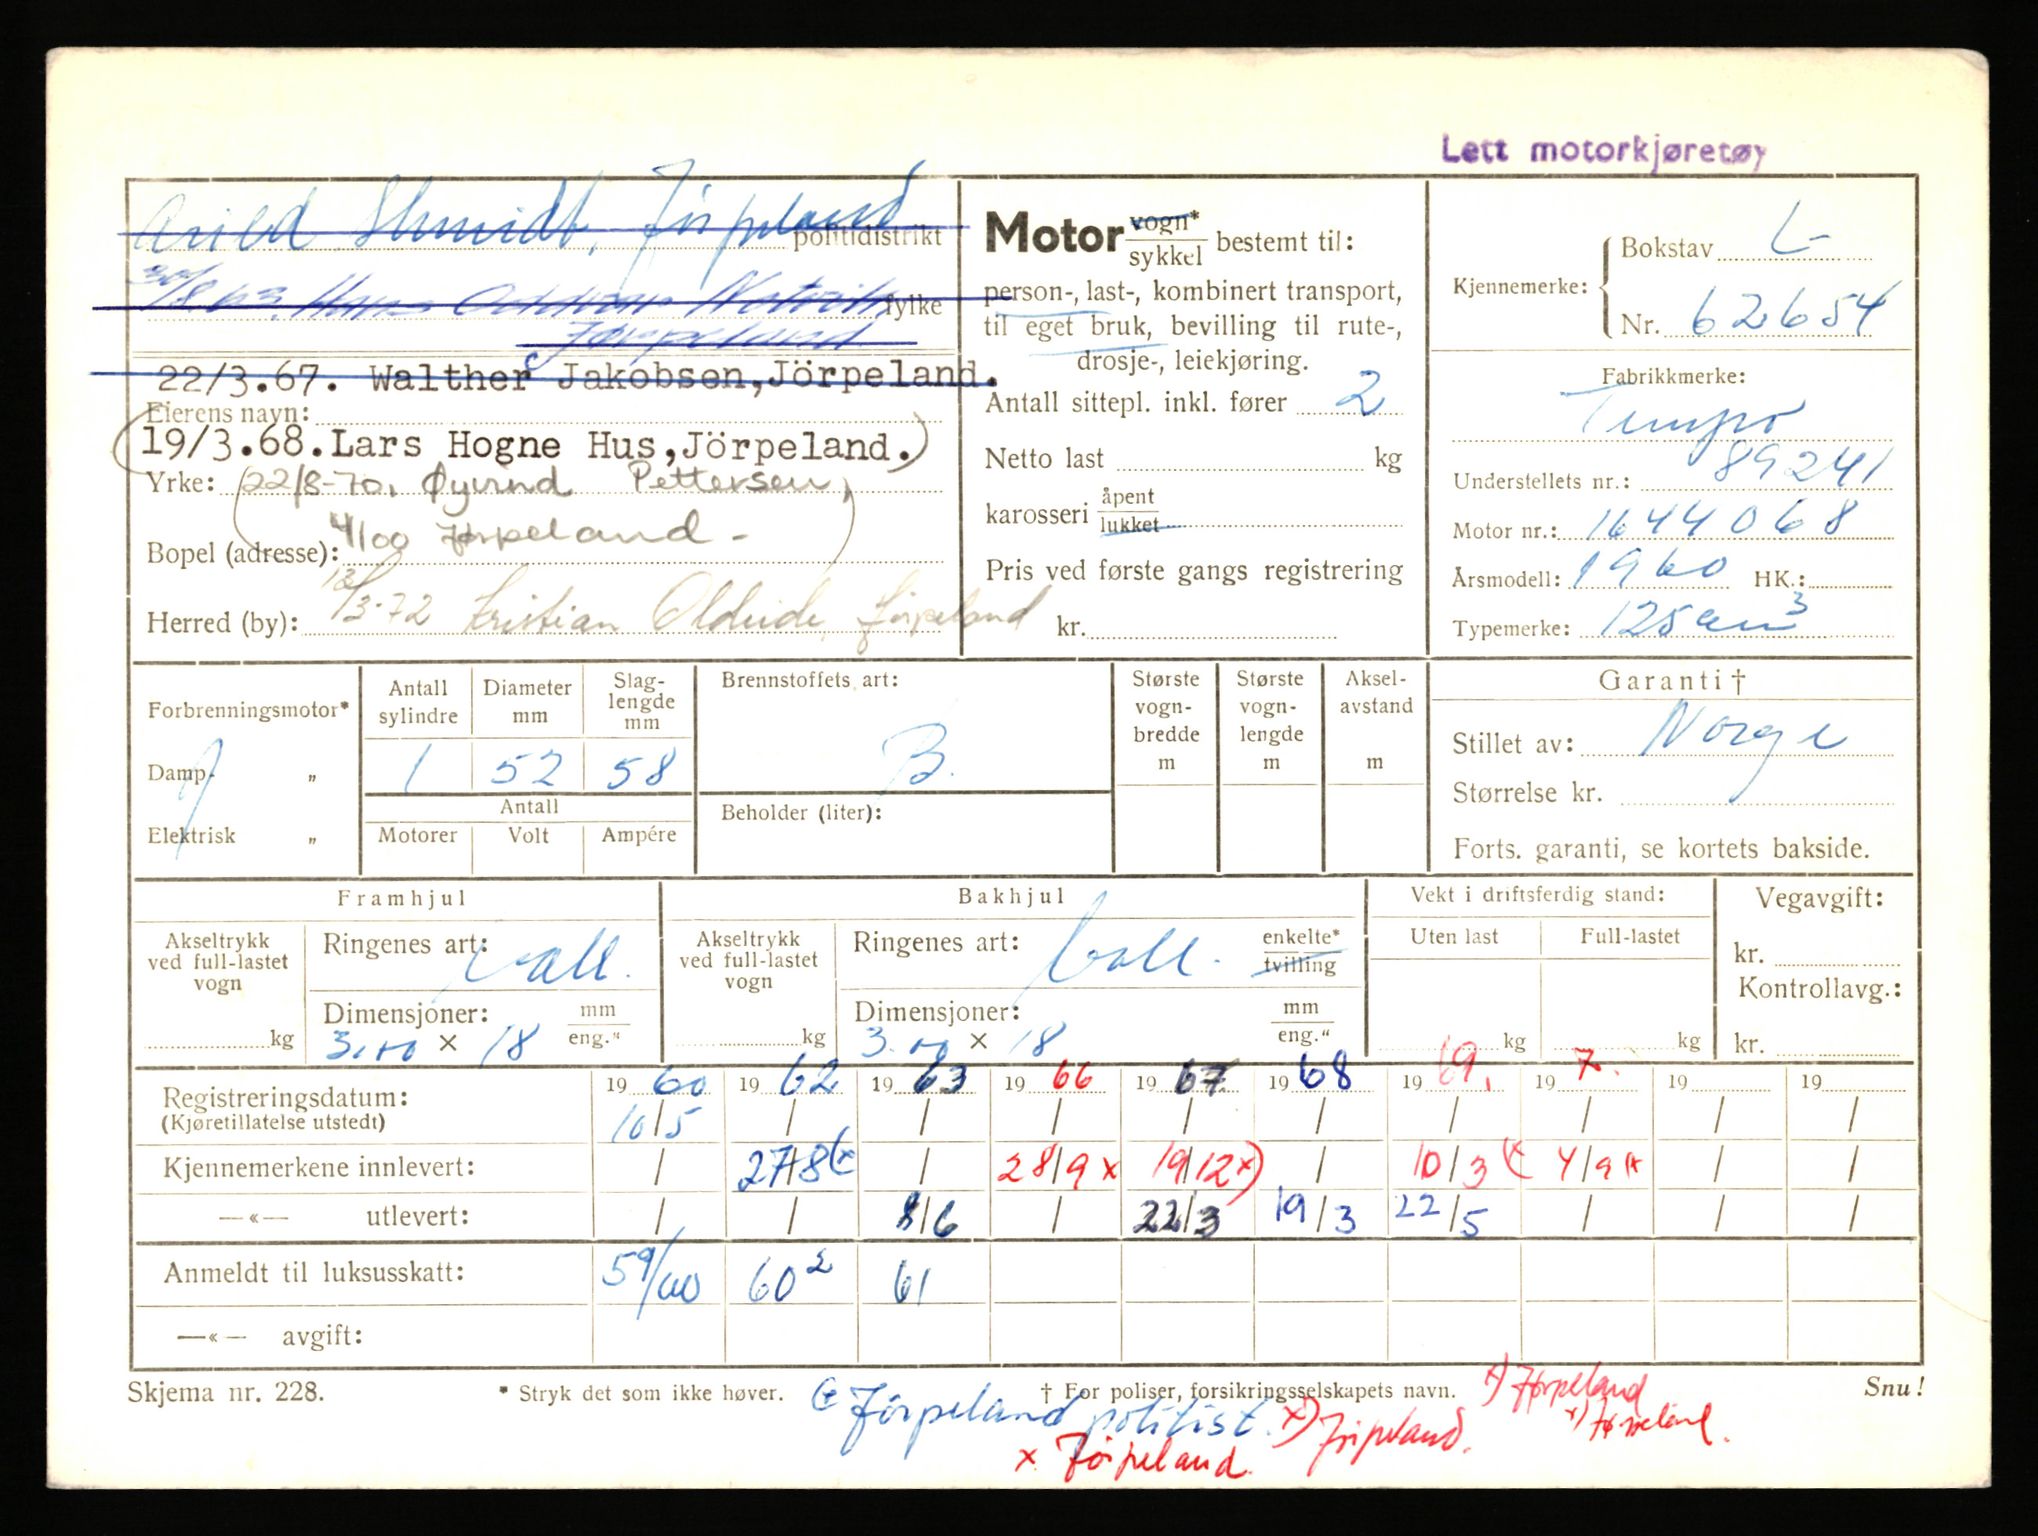 Lett motorkjøretøy
Arild Shmidt, Jörpeland
politidistrikt
30/8.63. Hans
fylke
Jørpeland
22/3.67. Walther Jakobsen,Jörpeland.
Eierens navn:
19/3.68.Lars Hogne Hus,Jörpeland.
Yrke: 22/8-70. Øyvind Pettersen,
4100 Jørpeland -
Bopel (adresse):
13/3-72 Kristian Jörpeland
Herred (by):
Motor vogn* sykkel bestemt til:
person-, last-, kombinert transport,
til eget bruk, bevilling til rute-,
drosje-, leiekjøring.
Antall sittepl. inkl. fører 2
Netto last kg
karosseri åpent lukket
Pris ved første gangs registrering
kr.
Kjennemerke: Bokstav L
Nr. 62654
Fabrikkmerke:
Tempo
Understellets nr.: 89241
Motor nr.: 1644068
Årsmodell: 1960 HK.:
Typemerke: 125 cm3
Forbrenningsmotor*
Damp- „
Elektrisk „
Antall sylindre
Diameter mm
Slag-lengde mm
1 52 58
Antall
Motorer Volt Ampére
Brennstoffets art:
B.
Beholder (liter):
Største vogn-bredde m
Største vogn-lengde m
Aksel-avstand m
Garanti †
Stillet av: Norge
Størrelse kr.
Forts. garanti, se kortets bakside.
Framhjul
Akseltrykk ved full-lastet vogn
kg
Ringenes art: ball.
Dimensjoner: mm eng."
3.00 × 18
Bakhjul
Akseltrykk ved full-lastet vogn
kg
Ringenes art: ball. enkelte* tvilling
Dimensjoner: mm eng."
3.00 × 18
Vekt i driftsferdig stand:
Uten last Full-lastet
kg kg
Vegavgift:
kr.
Kontrollavg.:
kr.
Registreringsdatum: 1960 1962 1963 1966 1967 1968 1969. 197. 19 19
(Kjøretillatelse utstedt) 10/5 / / / / / / / / /
Kjennemerkene innlevert: / 27/8(x / 28/9 x 19/12x) / 10/3(x 4/9(x / /
—«— utlevert: / / 8/6 / 22/3 19/3 22/5 / / /
Anmeldt til luksusskatt: 59/60 60² 61
—«— avgift:
Skjema nr. 228.
* Stryk det som ikke høver.
† For poliser, forsikringsselskapets navn.
Snu!
x) Jørpeland
(x Jörpeland politist. x) Jörpeland.
x. Jörpeland.